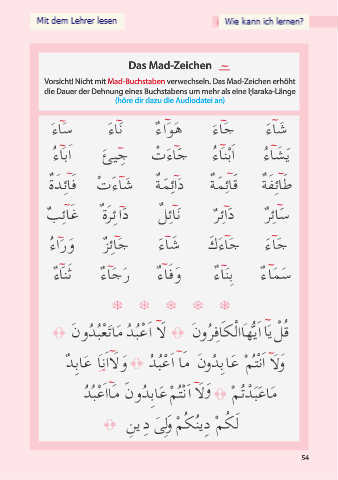 Mit dem Lehrer lesen
Wie kann ich lernen?
Das Mad-Zeichen ~
Vorsicht! Nicht mit Mad-Buchstaben verwechseln. Das Mad-Zeichen erhöht
die Dauer der Dehnung eines Buchstabens um mehr als eine Ḥaraka-Länge
(höre dir dazu die Audiodatei an)
شَآءَ جَآءَ هَوَآءٌ نَآءَ سَآءَ
يَشَآءُ أَبْنَآءُ جَآءَتْ جِيٓءَ أَبَآءُ
طَآئِفَةٌ قَآئِمَةٌ دَآئِمَةٌ شَآءَتْ فَآئِدَةٌ
سَآئِرٌ دَآئِرٌ نَآئِلٌ دَآئِرَةٌ غَآئِبٌ
جَآءَ جَآءَكَ شَآءَ جَآئِزٌ وَرَآءُ
سَمَآءٌ بِنَآءٌ وَفَآءٌ رَجَآءٌ ثَنَآءٌ
قُلْ يَآ اَيُّهَا الْكَافِرُونَ لَآ اَعْبُدُ مَا تَعْبُدُونَ
وَلَآ اَنْتُمْ عَابِدُونَ مَآ اَعْبُدُ وَلَآ اَنَا عَابِدٌ
مَا عَبَدْتُمْ وَلَآ اَنْتُمْ عَابِدُونَ مَآ اَعْبُدُ
لَكُمْ دِينُكُمْ وَلِىَ دِينِ
54